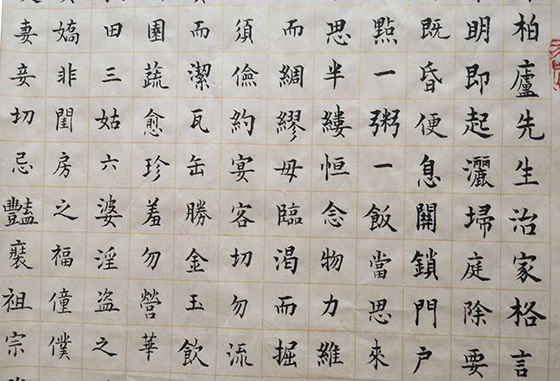 柏廬先生治家格言
明即起灑埽庭除要
既昏便息關鎖門戶
點一粥一飯當思來
思半縷恒念物力維
而綢繆毋臨渴而掘
須儉約宴客切勿流
而潔瓦缶勝金玉飲
園蔬愈珍羞勿營華
田三姑六婆淫盜之
嬌非閨房之福僮僕
妻妾切忌豔裝祖宗